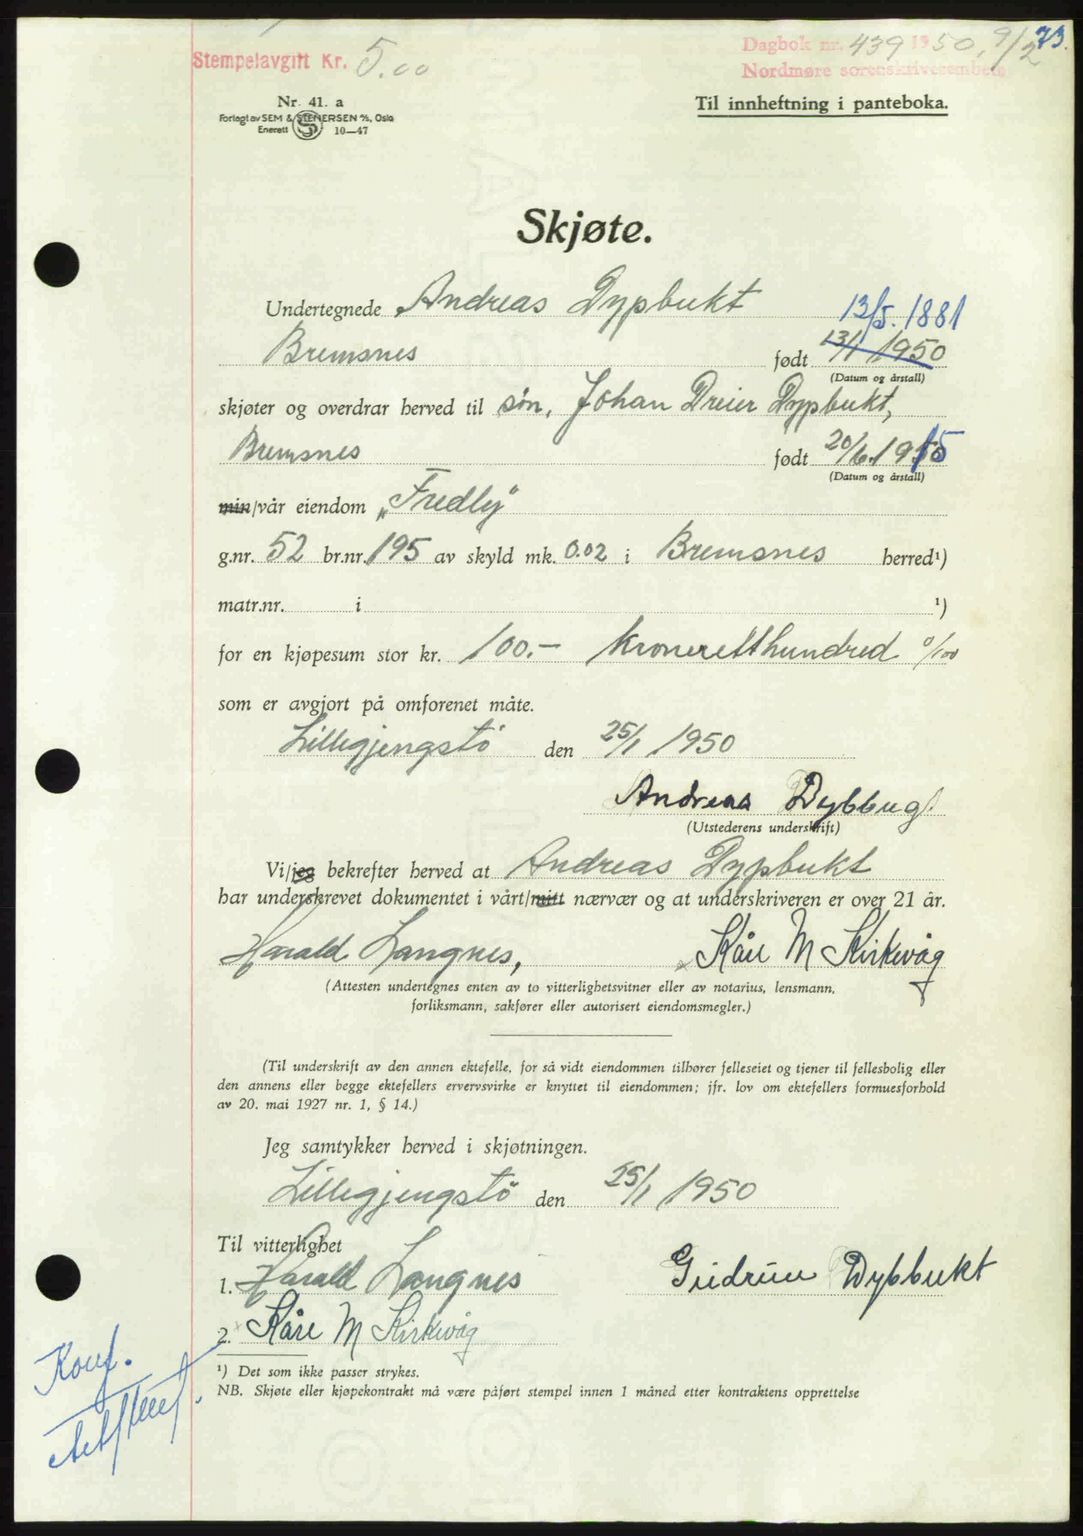 Stempelavgift Kr. 5.00
Dagbok nr. 439 1950, 9/2 73.
Nordmøre sorenskriverembete
Nr. 41. a
Forlagt av SEM & STENERSEN A/S, Oslo
Enerett 10—47
Til innheftning i panteboka.
Skjøte.
Undertegnede Andreas Dypbukt 13/5. 1881
Bremsnes født 13/1 1950
(Datum og årstall)
skjøter og overdrar herved til søn, Johan Dreier Dypbukt,
Bremsnes født 20/6. 1915
(Datum og årstall)
min/vår eiendom „Fredly"
g.nr. 52 br.nr. 195 av skyld mk. 0.02 i Bremsnes herred¹)
matr.nr. i ¹)
for en kjøpesum stor kr. 100.- kroneretthundred 0/100
som er avgjort på omforenet måte.
Lillegjengstö den 25/1 1950
Andreas Dybbugt
(Utstederens underskrift)
Vi/jeg bekrefter herved at Andreas Dypbukt
har underskrevet dokumentet i vårt/mitt nærvær og at underskriveren er over 21 år.
Harald Langnes, Kåre M Kirkevåg
(Attesten undertegnes enten av to vitterlighetsvitner eller av notarius, lensmann,
forliksmann, sakfører eller autorisert eiendomsmegler.)
(Til underskrift av den annen ektefelle, for så vidt eiendommen tilhører felleseiet og tjener til fellesbolig eller
den annens eller begge ektefellers ervervsvirke er knyttet til eiendommen; jfr. lov om ektefellers formuesforhold
av 20. mai 1927 nr. 1, § 14.)
Jeg samtykker herved i skjøtningen.
Lillegjengstö den 25/1 1950
Til vitterlighet
1. Harald Langnes Gudrun Dybbukt
2. Kåre M Kirkevåg
Konf.
¹) Det som ikke passer strykes.
NB. Skjøte eller kjøpekontrakt må være påført stempel innen 1 måned etter kontraktens opprettelse